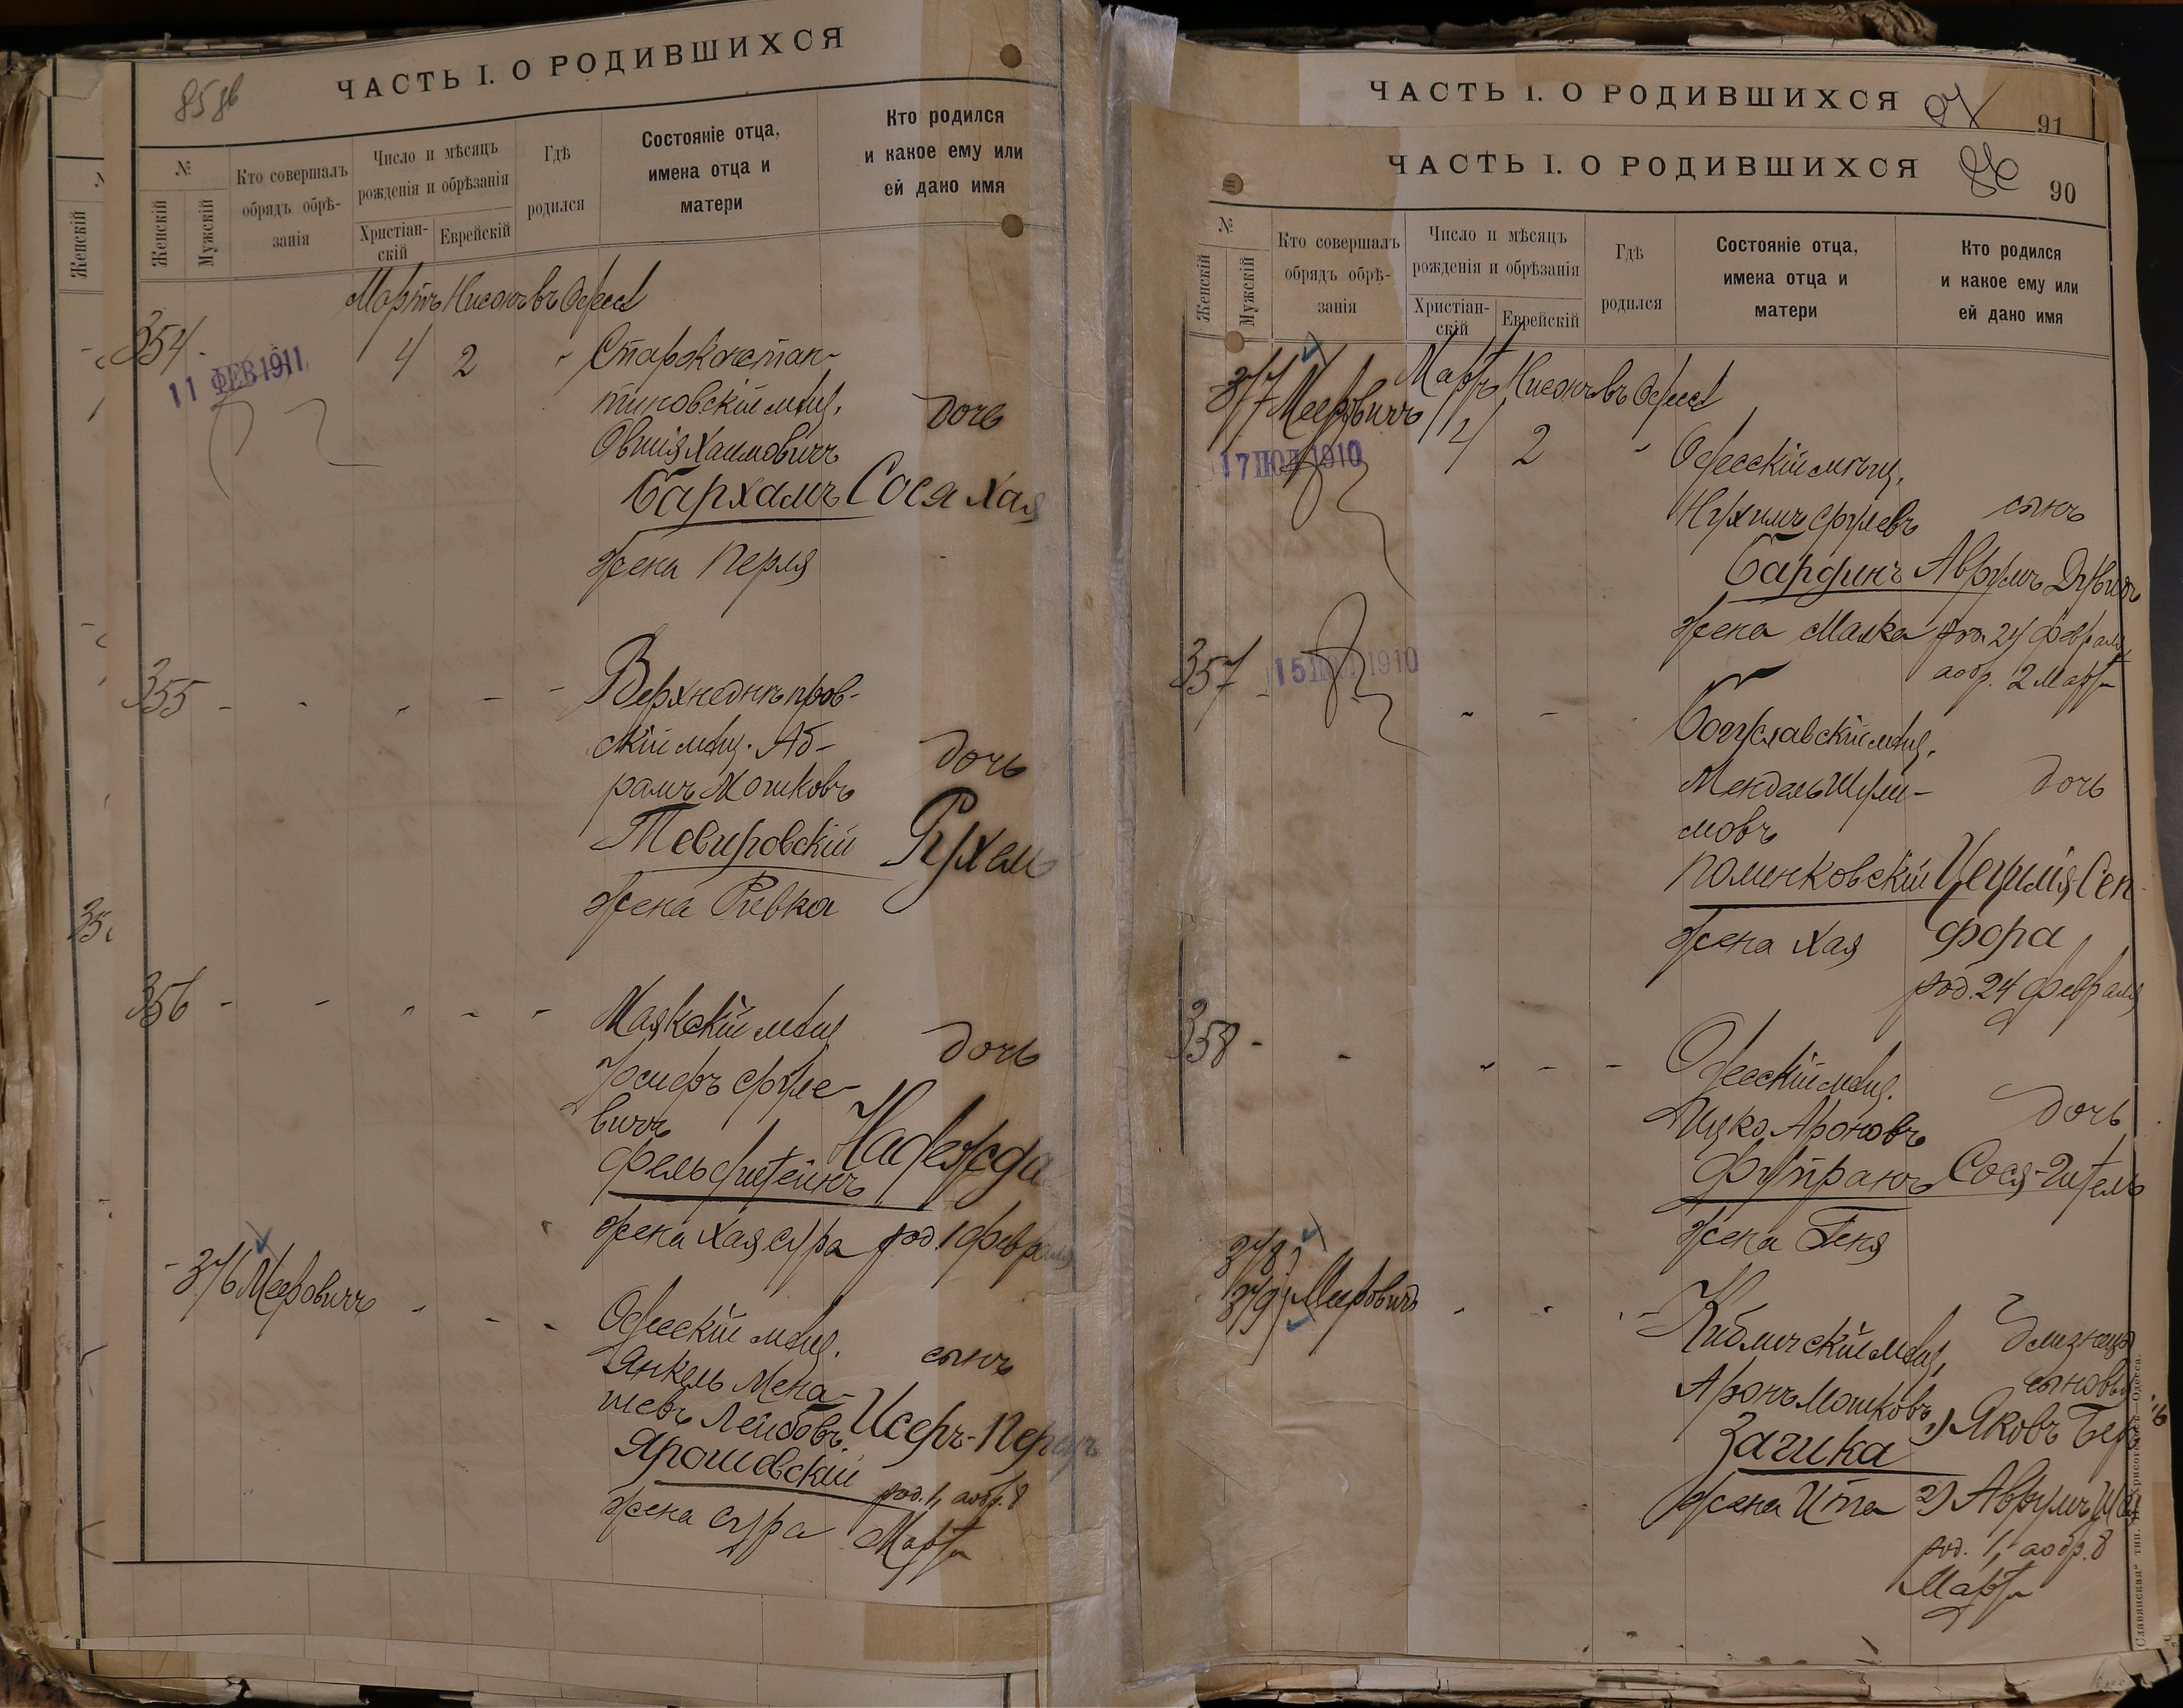 85 об
ЧАСТЬ I. О РОДИВШИХСЯ
№
Женскій
Женскій
Мужскій
Кто совершалъ
обрядъ обрѣ-
занія
Число и мѣсяцъ
рожденія и обрѣзанія
Христіан-
скій
Еврейскій
Гдѣ
родился
Состояніе отца,
имена отца и
матери
Кто родился
и какое ему или
ей дано имя
Мартъ Нисонъ въ Одессѣ
354
11 ФЕВ 1911
4 2 Староконстан-
тиновскій мѣщ.
Овшія Хаимовичъ
дочь
Бархамъ Сося Хая
жена Перля
355 - - Верхнеднѣпров-
скій мѣщ. Аб-
рамъ Мошковъ
дочь
Тевировскій Рухель
жена Ривка
356 - - - - Маякскій мѣщ
дочь
Іосифъ Сруле-
вичъ
Надежда
Фельдштейнъ
жена Хая Сура род. 1 февраля
376 Мееровичъ - - - Одесскій мѣщ.
сынъ
Янкель Мена-
шевъ Лейбовъ
Исеръ-Перецъ
Ярошевскій
род. 1, а обр. 8
жена Сура Марта
ЧАСТЬ I. О РОДИВШИХСЯ
91
ЧАСТЬ I. О РОДИВШИХСЯ 86
90
№
Женскій
Мужскій
Кто совершалъ
обрядъ обрѣ-
занія
Число и мѣсяцъ
рожденія и обрѣзанія
Христіан-
скій
Еврейскій
Гдѣ
родился
Состояніе отца,
имена отца и
матери
Кто родился
и какое ему или
ей дано имя
Мартъ Нисонъ въ Одессѣ
377 Мееровичъ
17 1910
4 2 Одесскій мѣщ.
Нухимъ Срулевъ сынъ
Бардинъ Аврумъ Дувидъ
жена Малка род. 24 февраля
а обр. 2 Марта
357 - 15 1910
Богуславскій мѣщ.
Мендель Шули-
мовъ
дочь
Палинковскій Цецилія-Сеп-
фора
жена Хая
род. 24 февраля
358 - - - - Одесскій мѣщ.
Ицко Ароновъ дочь
Футранъ Сося-Гитель
жена Геня
378
379 Мееровичъ - - - Кибличскій мѣщ.
близнецы
сыновья
Аронъ Мошковъ 1) Яковъ Беръ
Зачика
жена Ита 2) Аврумъ
род. 1, а обр. 8
Марта